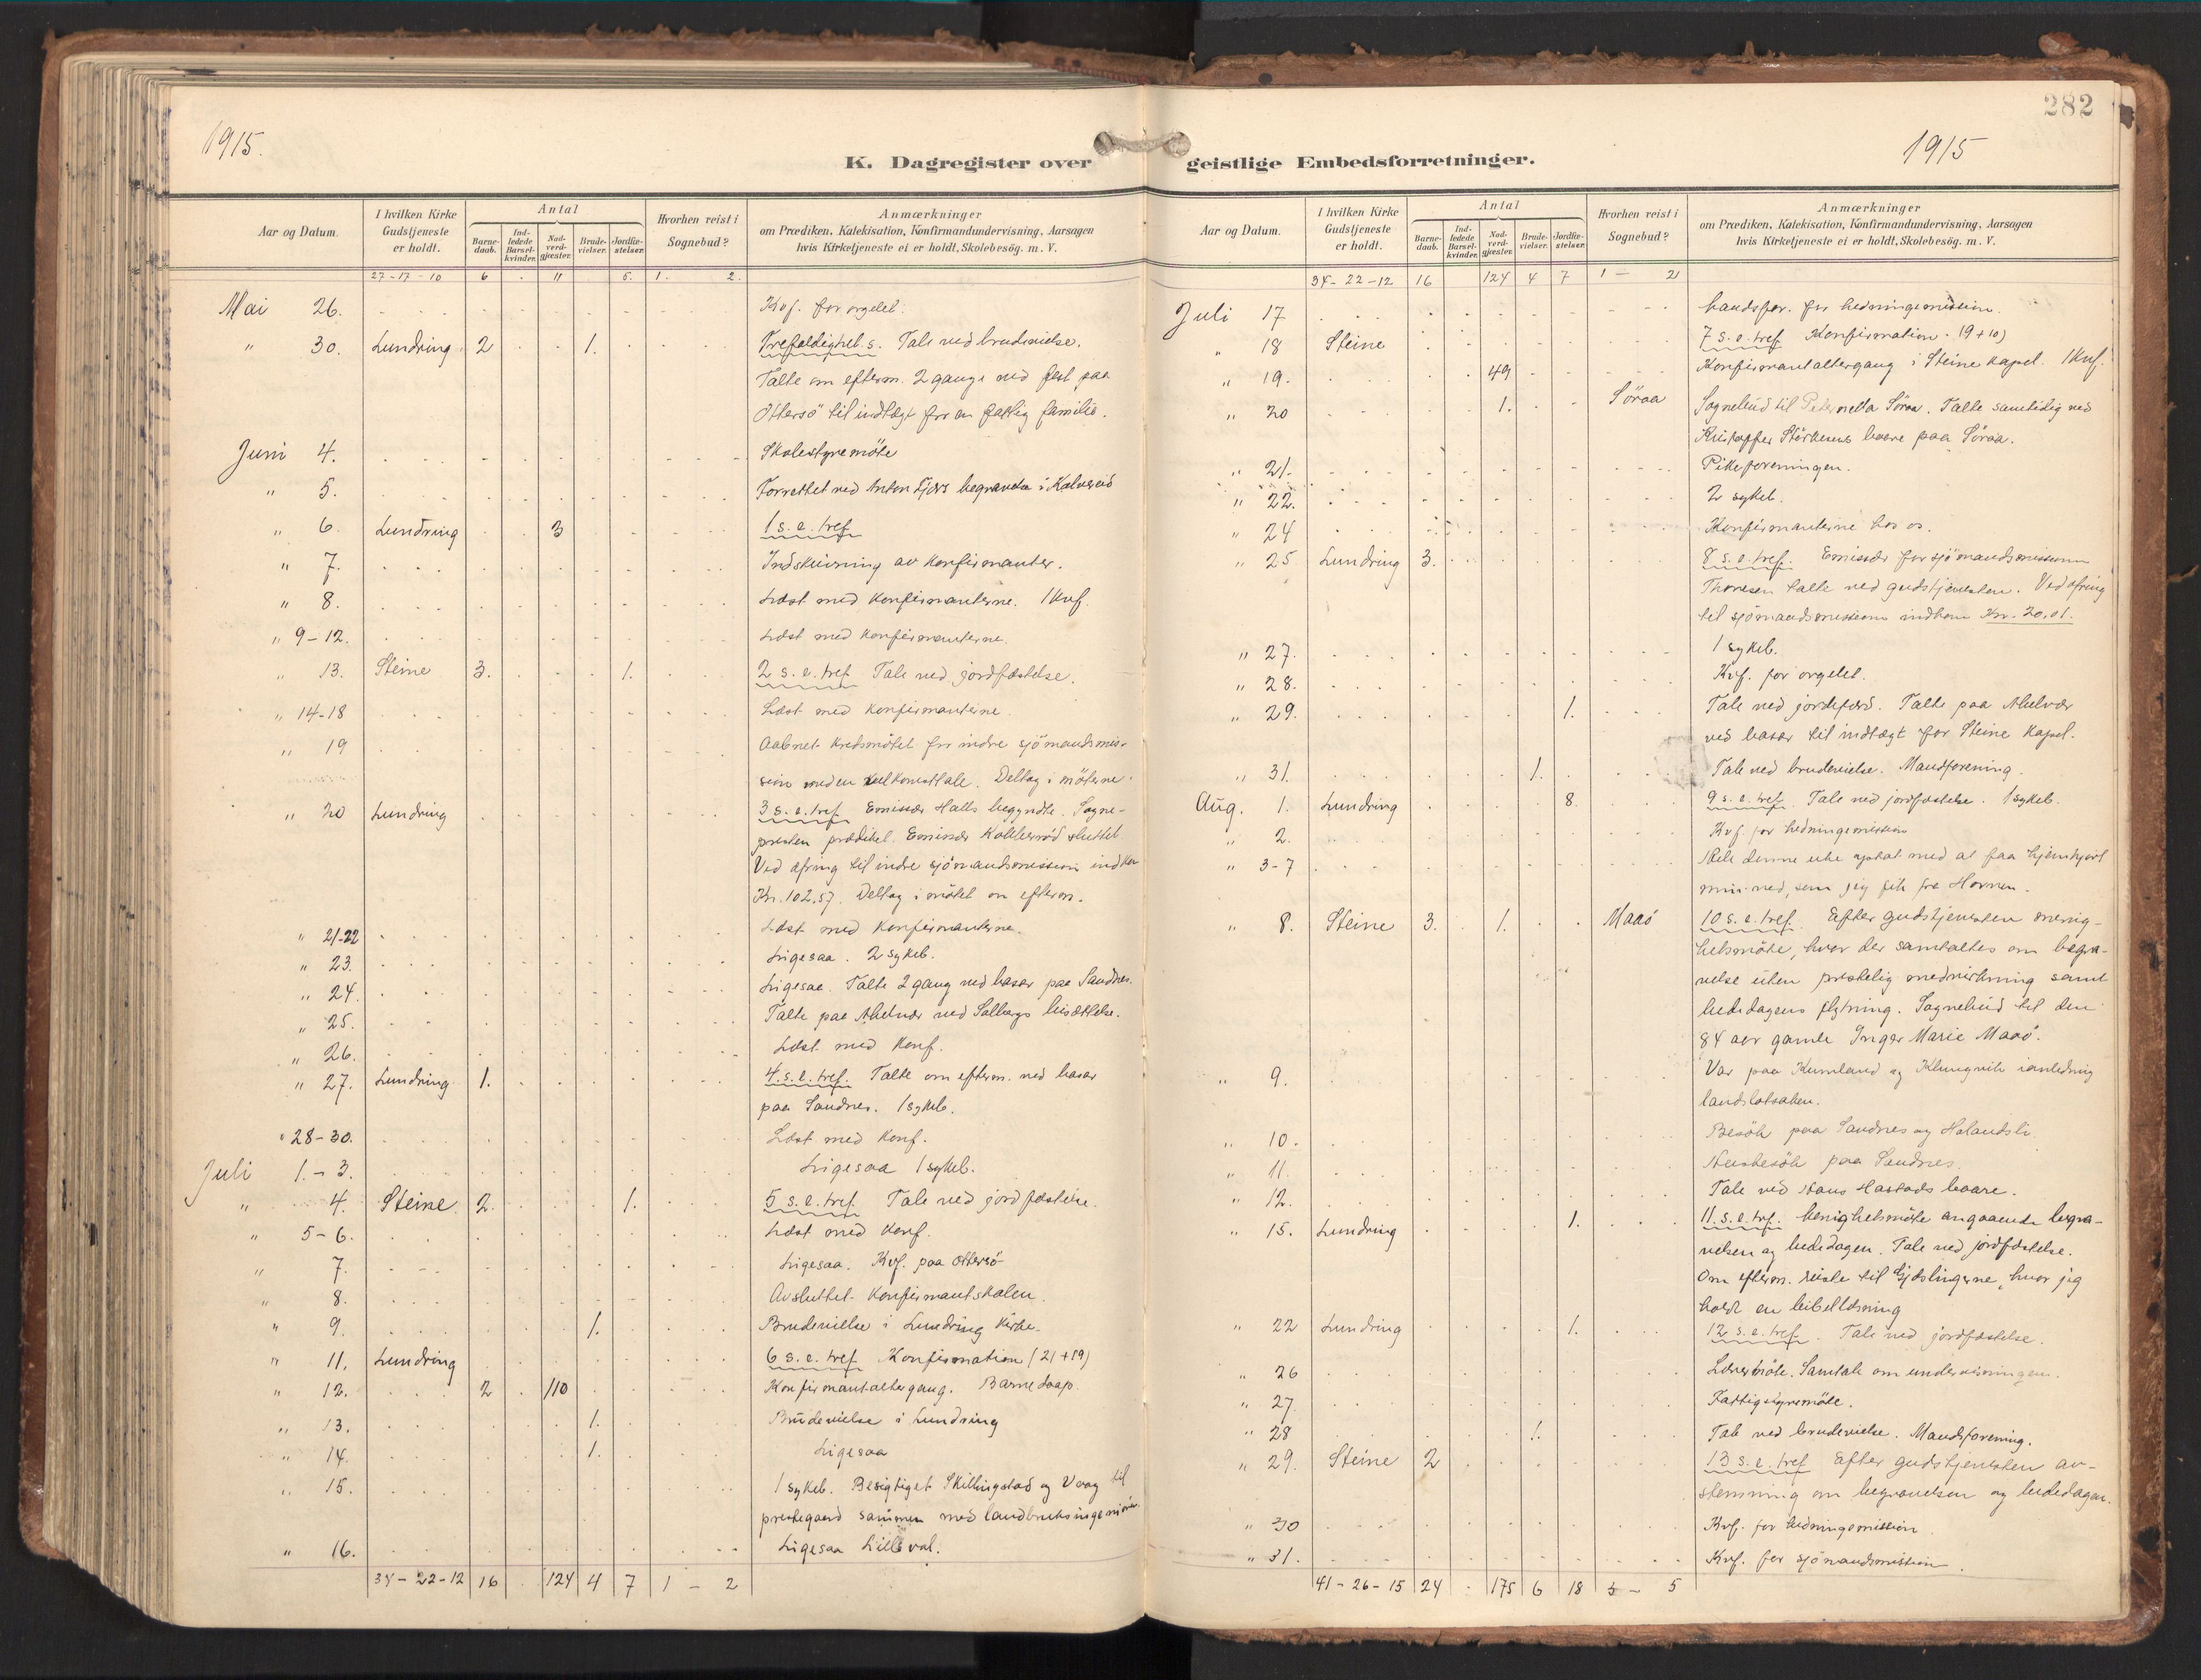 282
1915.
1915
K. Dagregister over geistlige Embedsforretninger.
Aar og Datum.
I hvilken Kirke Gudstjeneste er holdt.
Antal
Barne-daab.
Ind-ledede Barsel-kvinder.
Nad-verd-gjæster.
Brude-vielser.
Jordfæ-stelser.
Hvorhen reist i Sognebud?
Anmærkninger
om Prædiken, Katekisation, Konfirmandundervisning, Aarsagen
hvis Kirketjeneste ei er holdt, Skolebesög. m. V.
27-17-10 6 . 11 5. 1. 2.
Mai 26. Kvf. for orgelet.
" 30. Lundring. 2 1. Trefoldighet. s. Tale ved brudevielse.
Talte om efterm. 2 gange ved fest paa
Ottersö til indtægt for en fattig familie.
Juni 4. Skolestyremöte
" 5. Forrettet ved Anton begravelse i
" 6. Lundring 3 1 s. e. tref.
" 7. Indskrivning av konfirmanter.
" 8. Læst med konfirmanterne. 1 Kvf.
" 9-12. Læst med konfirmanterne.
" 13. Steine 3. 1. 2 s. e. tref. Tale ved jordfæstelse.
" 14-18 Læst med konfirmanterne.
" 19 Aabnet kredsmötet for indre sjömandsmis-
sion med en velkomsttale. Deltog i möterne.
" 20 Lundring 3 s. e. tref. Emissær Halls begyndte. Sogne-
presten prædiket. Emissær sluttet.
Ved ofring til indre sjömandsmission indkom
Kr. 102,57. Deltog i mötet om efterm.
" 21-22 Læst med konfirmanterne.
" 23. Ligesaa. 2 sykeb.
" 24. Ligesaa. Talte 2 gang ved basar paa Sandnes.
" 25. Talte paa Abelvær ved Solbergs bisættelse.
" 26. Læst med konf.
" 27. Lundring 1. 4. s. e. tref. Talte om efterm. ved basar
paa Sandnes. 1 sykeb.
" 28-30. Læst med konf.
Juli 1.-3. Ligesaa 1 sykeb.
" 4. Steine 2. 1. 5 s. e. tref. Tale ved jordfæstelse.
" 5-6. Læst med konf.
" 7. Ligesaa. Kvf. paa Ottersö
" 8. Avsluttet konfirmantskolen.
" 9. 1. Brudevielse i Lundring kirke.
" 11. Lundring 6 s. e. tref. Konfirmation (21+19)
" 12. 2 110 Konfirmantaltergang. Barnedaap.
" 13. 1. Brudevielse i Lundring
" 14. 1. Ligesaa
" 15. 1 sykeb. Besigtiget Skillingstad og Vaag til
prestegaard sammen med landbruksingeniör.
" 16. Ligesaa
34-22-12 16 . 124 4 7 1 - 2
Aar og Datum.
I hvilken Kirke Gudstjeneste er holdt.
Antal
Barne-daab.
Ind-ledede Barsel-kvinder.
Nad-verd-gjæster.
Brude-vielser.
Jordfæ-stelser.
Hvorhen reist i Sognebud?
Anmærkninger
om Prædiken, Katekisation, Konfirmandundervisning, Aarsagen
hvis Kirketjeneste ei er holdt, Skolebesög. m. V.
34-22-12 16 124 4 7 1 - 2
Juli 17 for hedningemission.
" 18 Steine 7 s. e. tref. Konfirmation. 19+10)
" 19. 49 Konfirmantaltergang i Steine kapel. 1 Kvf.
" 20 1. Söraa Sognebud til Peternella Söraa. Talte samtidig ved
baare paa Söraa.
" 21. Pikeforeningen.
" 22. 2 sykeb.
" 24 Konfirmanterne hos os.
" 25 Lundring 3. 8 s. e. tref. Emissær for sjömandsmissionen
Thoresen talte ved gudstjenesten. Ved ofring
til sjömandsmissionen indkom Kr. 20,01.
" 27. 1 sykeb.
" 28. Kvf. for orgelet.
" 29. 1. Tale ved jordefærd. Talte paa Abelvær
ved basar til indtægt for Steine kapel.
" 31. 1. Tale ved brudevielse. Mandforening.
Aug. 1. Lundring 8. 9 s. e. tref. Tale ved jordfæstelse. 1 sykeb.
" 2. Kvf. for hedningemission
" 3-7 Hele denne uke optat med at faa
min ned, som jeg fik fra
" 8. Steine 3. 1. Maaö 10 s. e. tref. Efter gudstjenesten menig-
hetsmöte, hvor der samtaltes om begra-
velse uten prestelig medvirkning samt
bededagens flytning. Sognebud til den
84 aar gamle Inger Marie Maaö.
" 9. Var paa Kumland og Klungvik i anledning
landslotsaken.
" 10. Besök paa Sandnes og Holandsli
" 11. Husbesök paa Sandnes.
" 12. Tale ved Hans Hastads baare.
" 15. Lundring 1. 11. s. e. tref. Menighetsmöte angaaende begra-
velsen og bededagen. Tale ved jordfæstelse.
Om efterm. reiste til Gjæslingerne, hvor jeg
holdt en bibellæsning
" 22 Lundring 1. 12 s. e. tref. Tale ved jordfæstelse.
" 26 Lærermöte. Samtale om undervisningen.
" 27. Fattigstyremöte.
" 28 1. Tale ved brudevielse. Mandsforening.
" 29. Steine 2 13 s. e. tref Efter gudstjenesten av-
stemning om begravelsen og bededagen.
" 30 Kvf. for hedningemission
" 31. Kvf. for sjömandsmission.
41-26-15 24 . 175 6 18 3 - 5